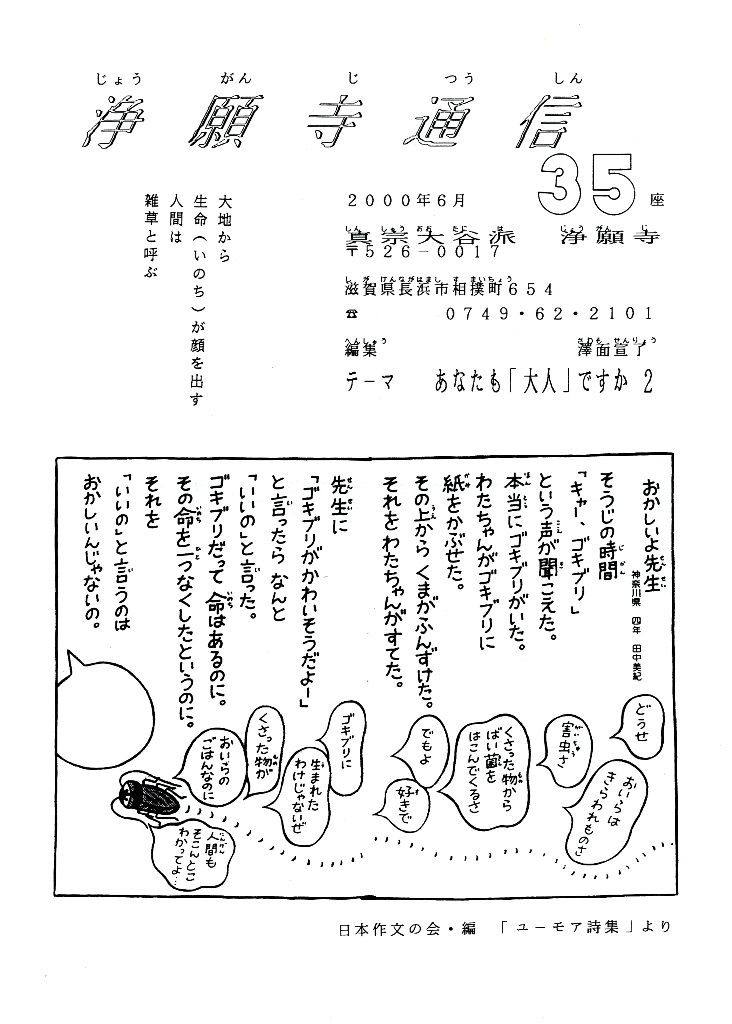 じょう がん じ つう しん
浄願寺通信
35座
2000年6月
しんしゅうおおたには じょうがんじ
真宗大谷派 浄願寺
〒526-0017
しがけんながはましすまいちょう
滋賀県長浜市相撲町654
☎ 0749・62・2101
へんしゅう さわもせんりょう
編集 澤面宣了
テーマ あなたも「大人」ですか 2
大地から
生命(いのち)が顔を出す
人間は
雑草と呼ぶ
おかしいよ先生
神奈川県 四年 田中美紀
そうじの時間
「キャー、ゴキブリ」
という声が聞こえた。
本当にゴキブリがいた。
わたちゃんがゴキブリに
紙をかぶせた。
その上からくまがふんずけた。
それをわたちゃんがすてた。
先生に
「ゴキブリがかわいそうだよー」
と言ったら なんと
「いいの」と言った。
ゴキブリだって 命はあるのに。
その命を一つなくしたというのに。
それを
「いいの」と言うのは
おかしいんじゃないの。
どうせ
おいらは
きらわれものさ
害虫さ
くさった物から
ばい菌を
はこんでくるさ
でもよ
好きで
ゴキブリに
生まれた
わけじゃないぜ
くさった物が
おいらの
ごはんなのに
人間も
そこんとこ
わかってよ…
日本作文の会・編 「ユーモア詩集」より